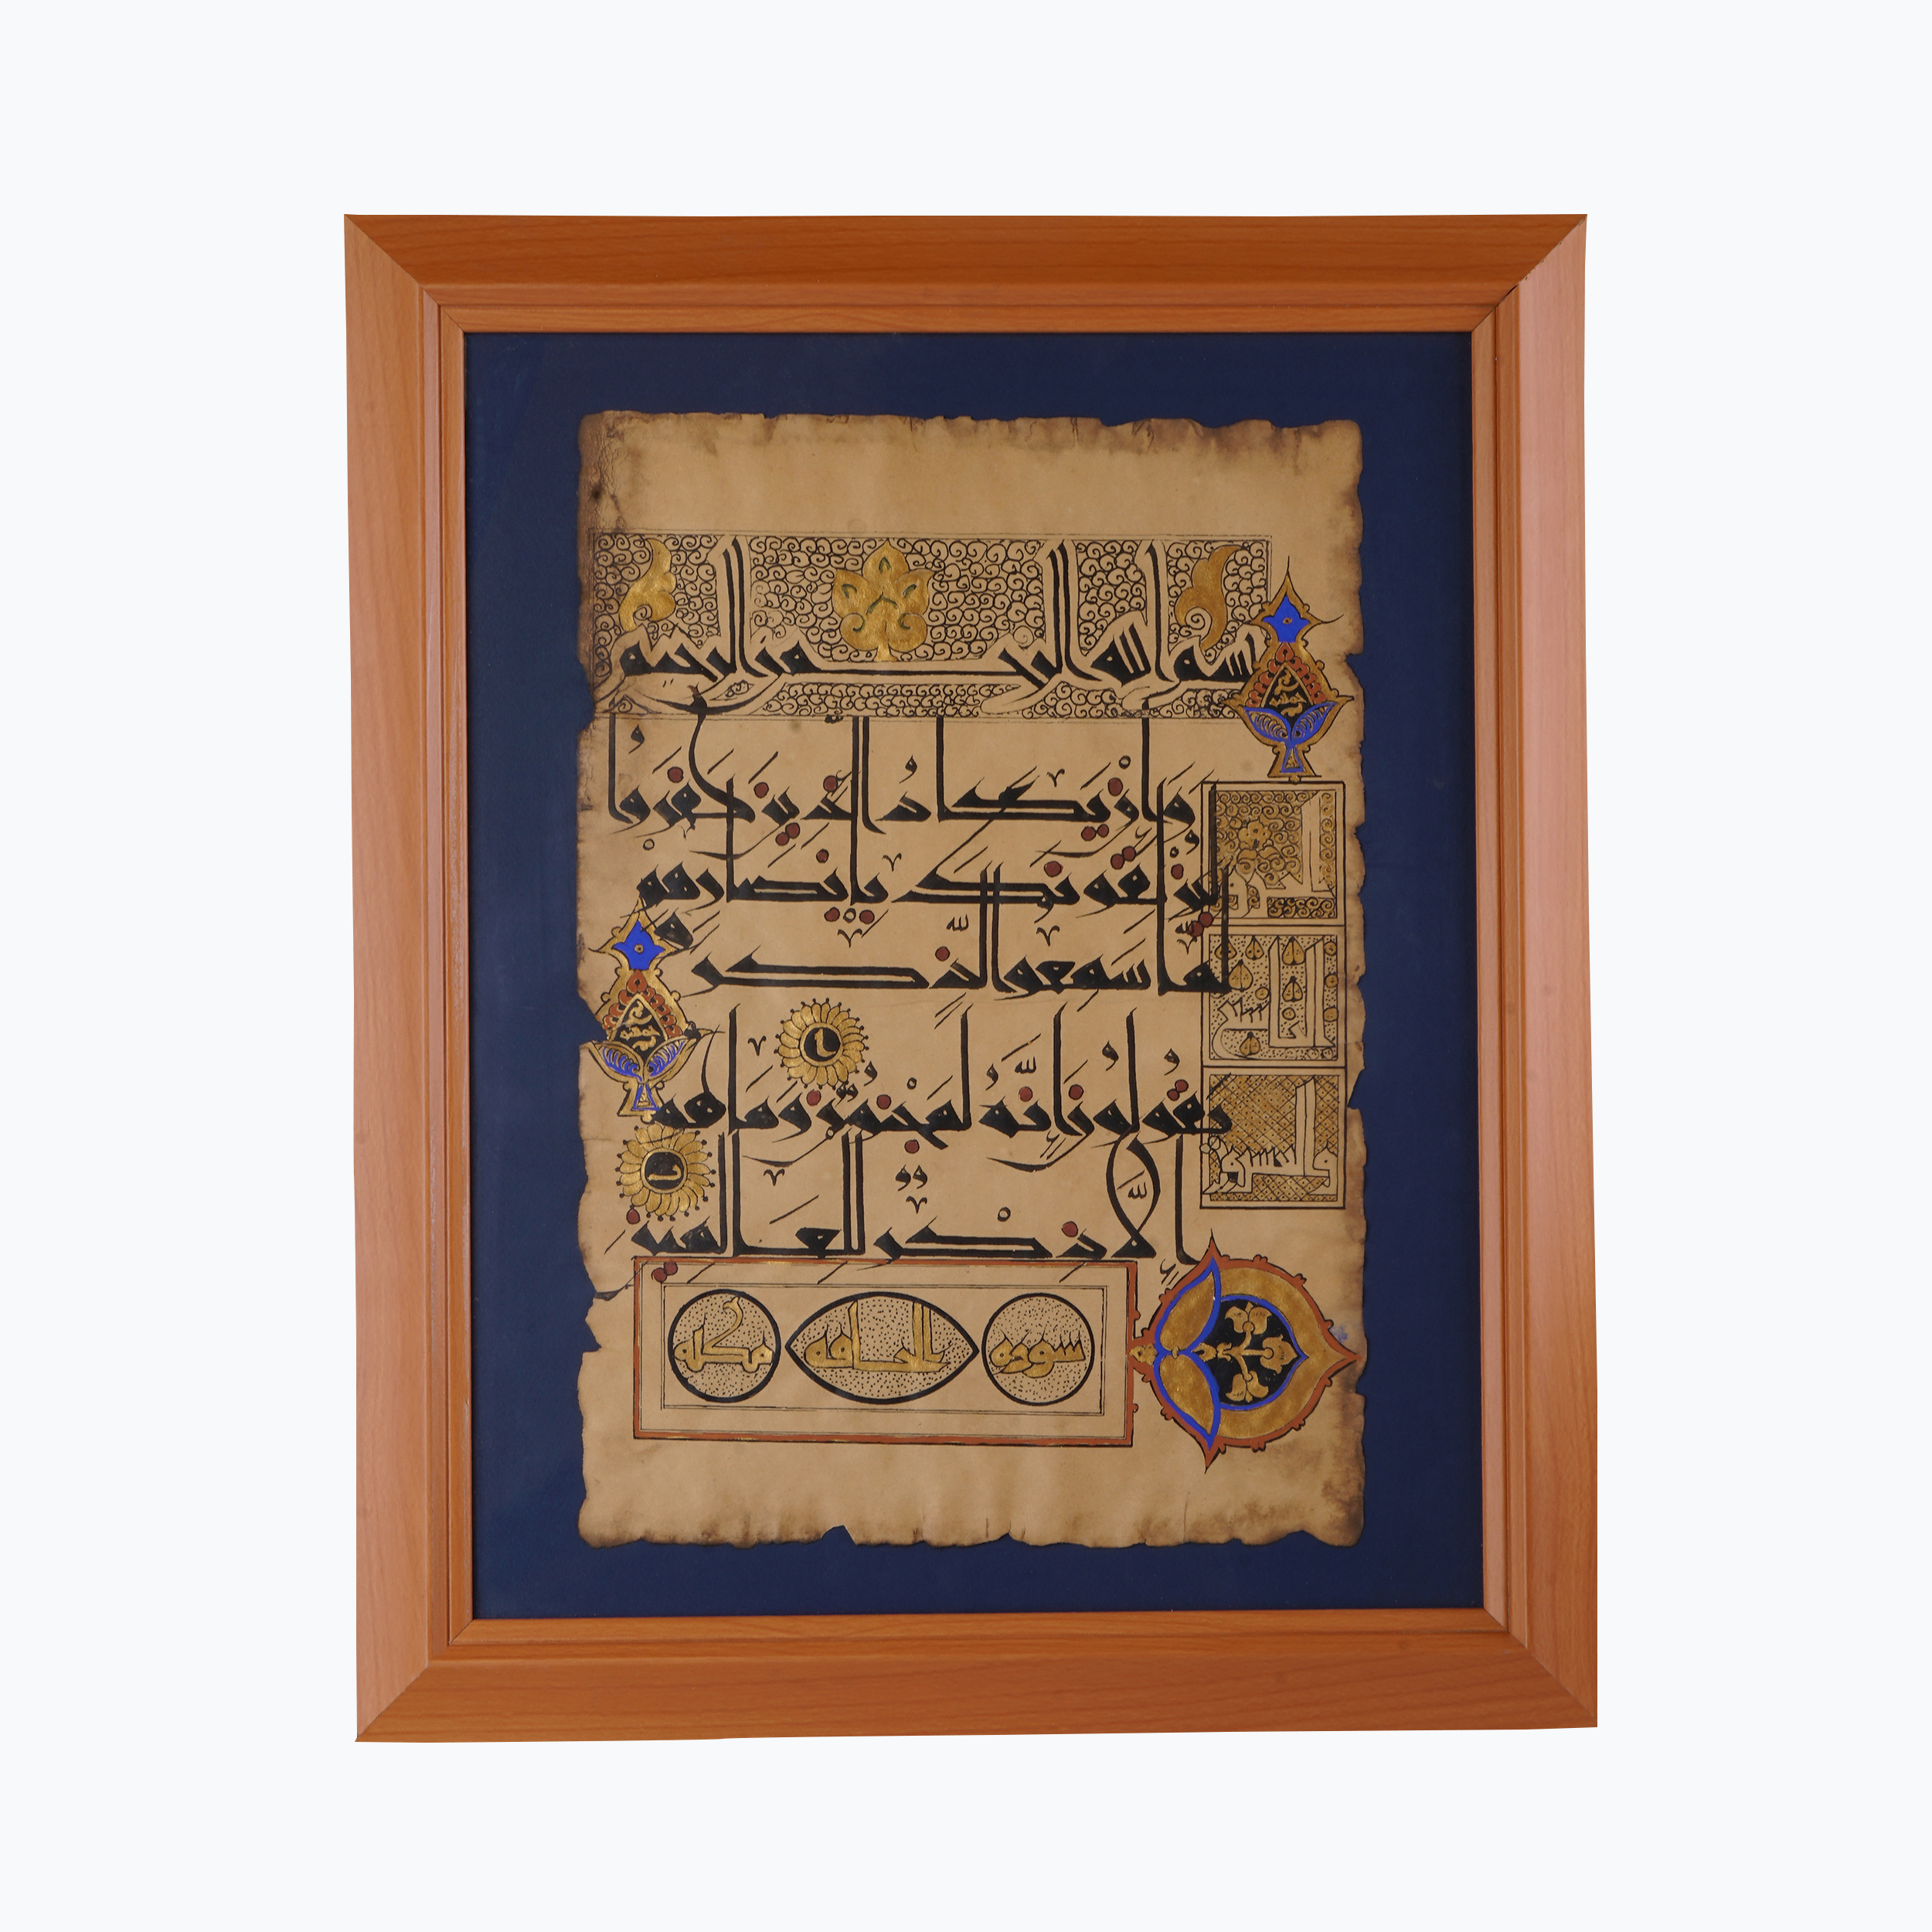 بسم الله الرحمن الرحيم
وَإِنْ يَكَادُ الَّذِينَ كَفَرُوا
لَيُزْلِقُونَكَ بِأَبْصَارِهِمْ
لَمَّا سَمِعُوا الذِّكْرَ وَ
يَقُولُونَ إِنَّهُ لَمَجْنُونٌ وَمَا هُوَ
إِلَّا ذِكْرٌ لِلْعَالَمِينَ
سورة الحاقه مكية